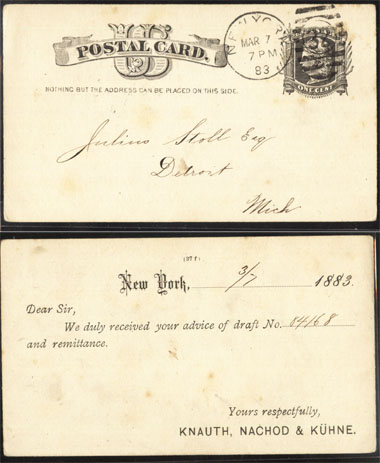 POSTAL CARD.
US
NEW YORK
MAR 7
7 PM
83
ONE CENT
NOTHING BUT THE ADDRESS CAN BE PLACED ON THIS SIDE.
Julius Stoll Esq
Detroit
Mich
New York, 3/7 1883.
Dear Sir,
We duly received your advice of draft No. 04168
and remittance.
Yours respectfully,
KNAUTH, NACHOD & KÜHNE.